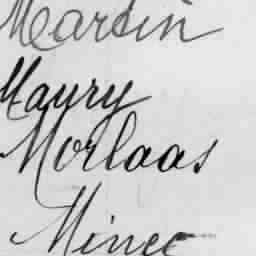 Martin
Maury
Morlaas
Minec